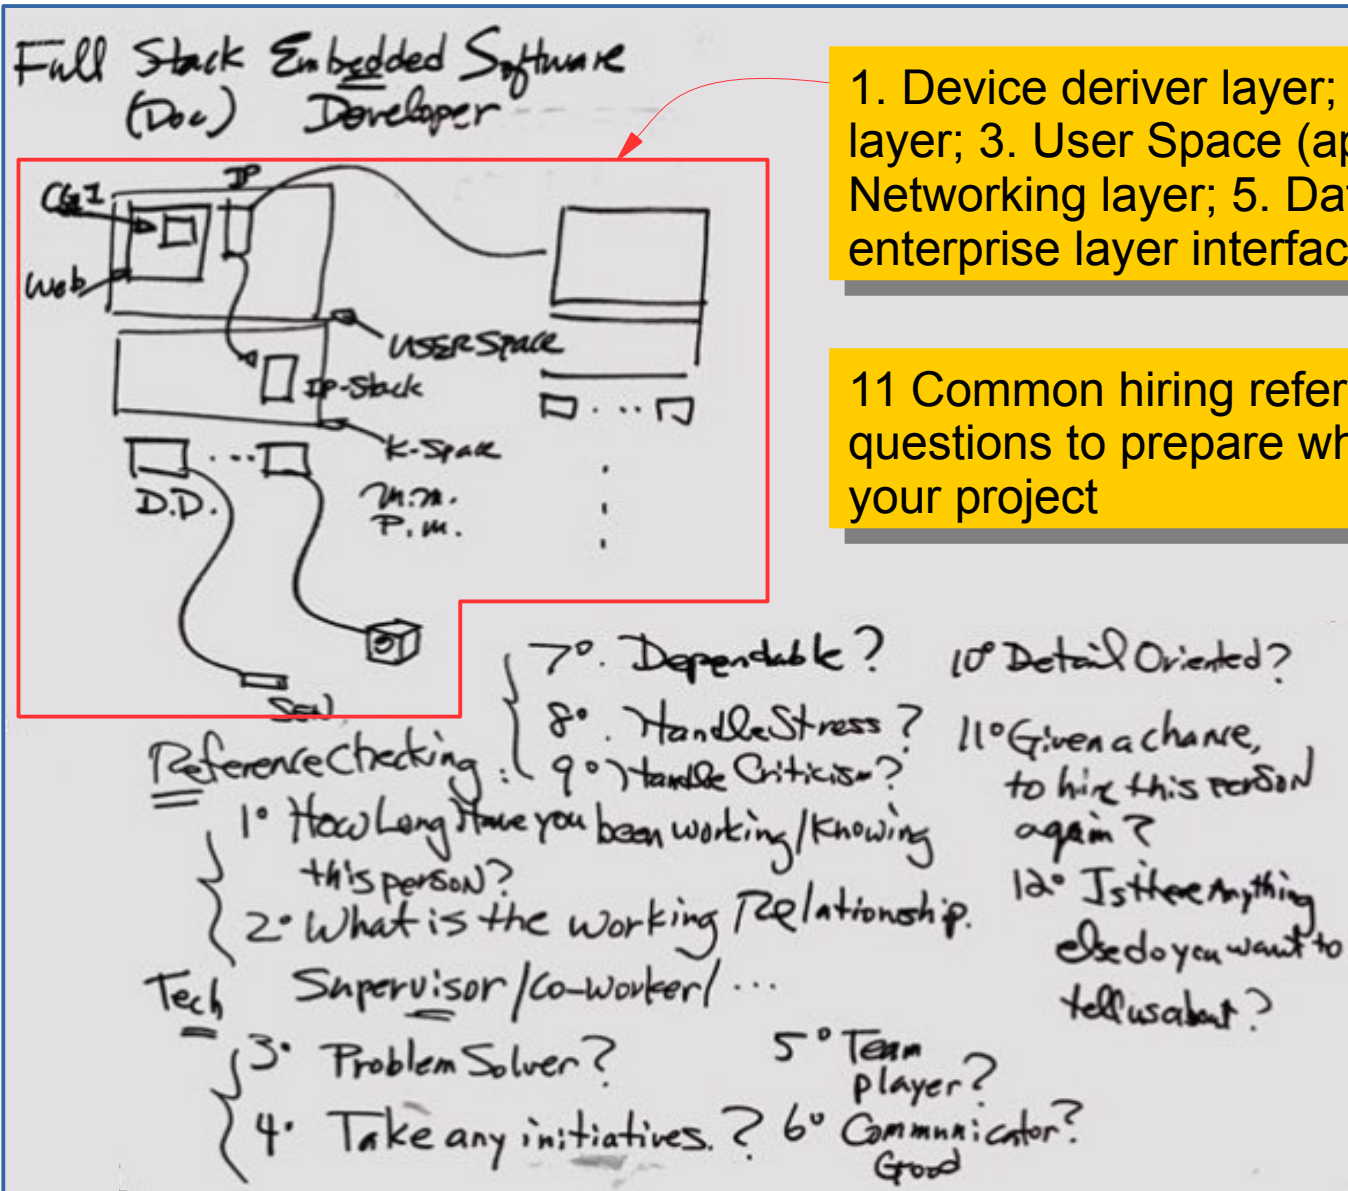 Full Stack Embedded Software
(Doc) Developer
1. Device deriver layer;
layer; 3. User Space (ap
Networking layer; 5. Dat
enterprise layer interfac
CGI
IP
Web
USER Space
IP-Stack
K-Space
D.D.
...
M.M.
P.M.
...
SEN.
11 Common hiring refer
questions to prepare wh
your project
Reference Checking:
1° How Long Have you been working/Knowing
this person?
2° What is the working Relationship.
Supervisor/Co-worker/...
Tech
3° Problem Solver?
4° Take any initiatives.?
5° Team
player?
6° Communicator?
Good
7°. Dependable?
8°. Handle Stress?
9° Handle Criticism?
10° Detail Oriented?
11° Given a chance,
to hire this person
again?
12° Is there Anything
else do you want to
tell us about?